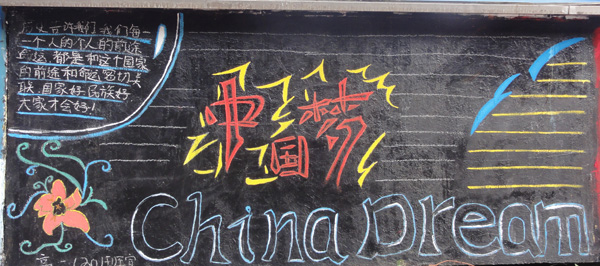 历史告诉我们,我们每
一个人的个人的前途
命运,都是和这个国家
的前途和命运密切关
联,国家好,民族好,
大家才会好!
中国梦
China Dream
高一